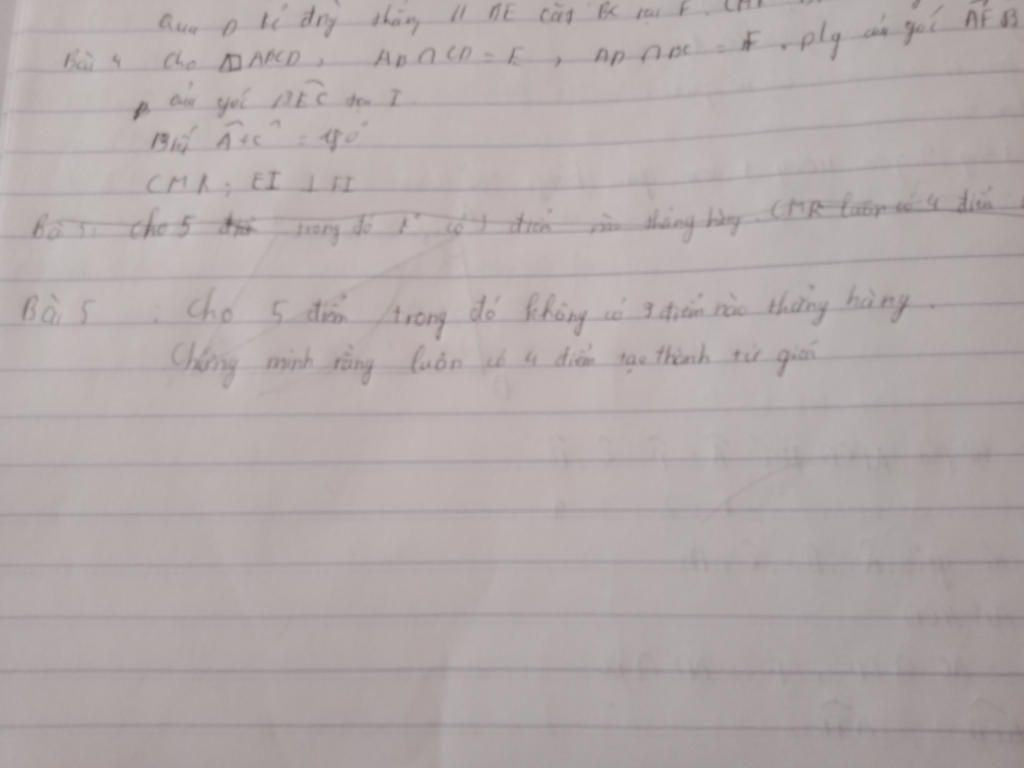 Qua D kẻ đng thẳng // AE cắt BC tại F. CMR
Bài 4 Cho □ABCD, AB ∩ CD = E, AD ∩ BC = F. plg của góc AFB
góc BEC tại I.
Biết A + C = 180°
CMR: EI ⊥ FI
Bài 5: Cho 5 điểm trong đó k có 3 điểm nào thẳng hàng. CMR luôn có 4 điểm
Bài 5 : Cho 5 điểm trong đó không có 3 điểm nào thẳng hàng.
Chứng minh rằng luôn có 4 điểm tạo thành tứ giác